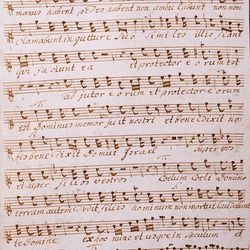 manus habent pedes habent non ambulabunt non non
clamabunt in gutture suo Similes illis fiant
qui faciunt ea et protector eorum est
adjutor eorum et protector eorum
est Dominus memor fuit nostri et benedixit no
bis benedixit domui Israel super vos
et super filios vestros Coelum Coeli Domino
terram autem dedit filiis hominum non mortui laudabunt
te Domine ex hoc nunc et usque in saeculum et